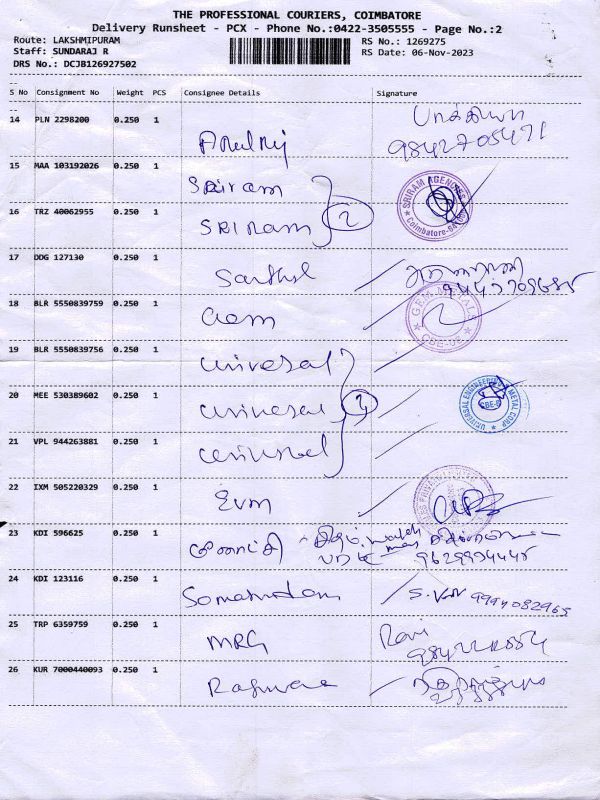 THE PROFESSIONAL COURIERS, COIMBATORE
Delivery Runsheet - PCX - Phone No.:0422-3505555 - Page No.:2
Route: LAKSHMIPURAM
Staff: SUNDARAJ R
DRS No.: DCJB126927502
RS No.: 1269275
RS Date: 06-Nov-2023
S No Consignment No Weight PCS Consignee Details Signature
14 PLN 2298200 0.250 1
9842705471
15 MAA 103192026 0.250 1 Sriram SRIRAM AGENCIES Coimbatore
16 TRZ 40062955 0.250 1 SRIRAM 2
17 DDG 127130 0.250 1
18 BLR 5550839759 0.250 1 Gem GEM METALS CBE-02
19 BLR 5550839756 0.250 1 Universal
20 MEE 530389602 0.250 1 Universal 3 UNIVERSAL ENGINEERING & METAL CORP CBE
21 VPL 944263881 0.250 1 Universal
22 IXM 505220329 0.250 1 EVM
23 KDI 596625 0.250 1
24 KDI 123116 0.250 1 S.V.M 9994082965
25 TRP 6359759 0.250 1 MRG Ravi
26 KUR 7000440093 0.250 1